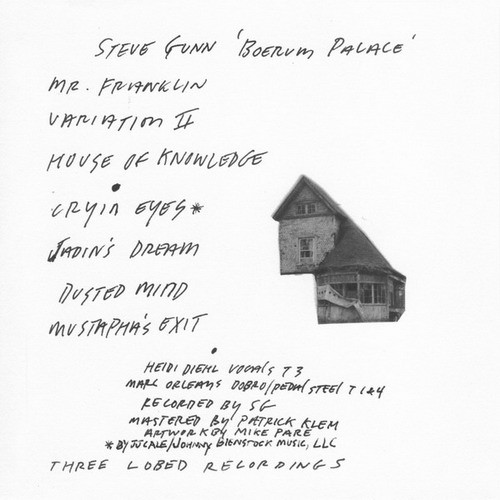 STEVE GUNN 'BOERUM PALACE'
MR. FRANKLIN
VARIATION II
HOUSE OF KNOWLEDGE
CRYIN EYES*
JADIN'S DREAM
DUSTED MIND
MUSTAPHA'S EXIT
HEIDI DIEHL VOCALS T3
MARC ORLEANS DOBRO/PEDAL STEEL T 1&4
RECORDED BY SG
MASTERED BY PATRICK KLEM
ARTWORK BY MIKE PARE
* BY JJ CALE/JOHNNY BIENSTOCK MUSIC, LLC
THREE LOBED RECORDINGS